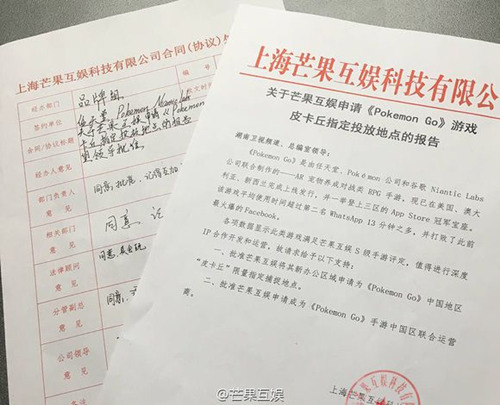 上海芒果互娱科技有限公司合同(协议)
经办部门
品牌部
编号
签约单位
任天堂、Pokemon、Niantic Labs
合同/协议标题
关于芒果互娱申请《Pokemon
皮卡丘指定投放地点的报告
经办人意见
部门负责人
意见
相关部门
意见
同意
法律顾问
意见
分管副总
意见
同意
公司领导
意见
备注
上海芒果互娱科技有限公
关于芒果互娱申请《Pokemon Go》游戏
皮卡丘指定投放地点的报告
湖南卫视频道、总编室领导:
《Pokemon Go》是由任天堂、Pokémon 公司和谷歌 Niantic Labs
公司联合制作的——AR 宠物养成对战类 RPG 手游，现已在美国、澳大
利亚、新西兰完成上线发行，并一举登上三区的 App Store 冠军宝座。
该游戏平均使用时间超过第二名 WhatsApp 13 分钟之多，并打败了此前
最火爆的 Facebook。
各项数据显示此类游戏满足芒果互娱 S 级手游评定，值得进行深度
IP 合作开发和运营。故请求给予以下支持:
一、批准芒果互娱将其新办公区域申请为《Pokemon Go》中国地区
“皮卡丘”限量指定捕捉地点。
二、批准芒果互娱申请成为《Pokemon Go》手游中国区联合运营
商。
上海芒果互娱科
@芒果互娱